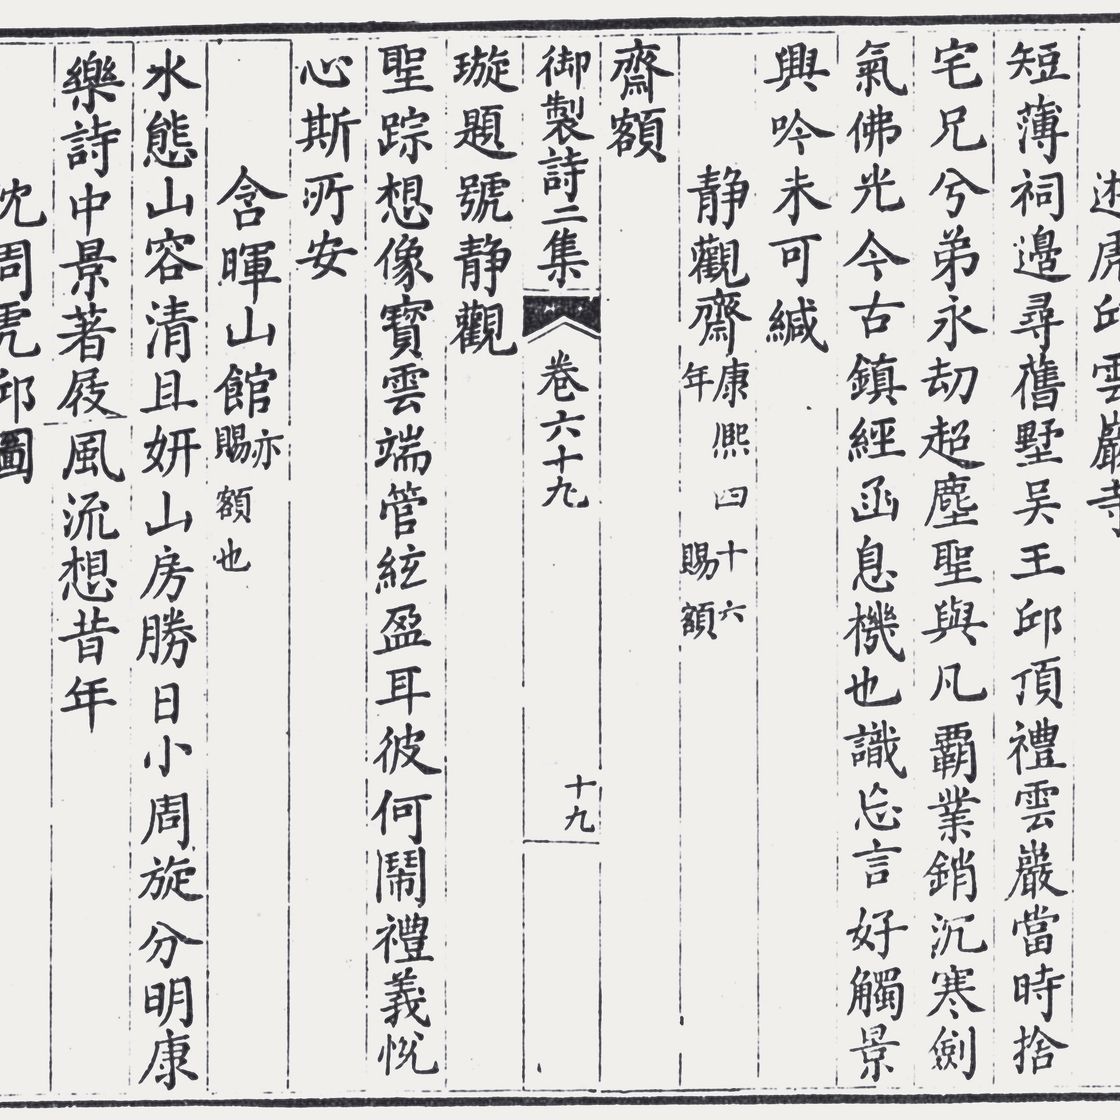 遊虎邱雲巖寺
短薄祠邉尋舊墅吴王邱頂禮雲巖當時捨
宅兄兮弟永劫超塵聖與凡覇業銷沉寒劍
氣佛光今古鎮經函息機也識忘言好觸景
興吟未可緘
静觀齋康熙四十六年賜額
齋額
御製詩二集 卷六十九 十九
璇題號静觀
聖踪想像寳雲端管絃盈耳彼何鬧禮義悦
心斯所安
含暉山館亦賜額也
水態山容清且妍山房勝日小周旋分明康
樂詩中景著屐風流想昔年
沈周虎邱圖